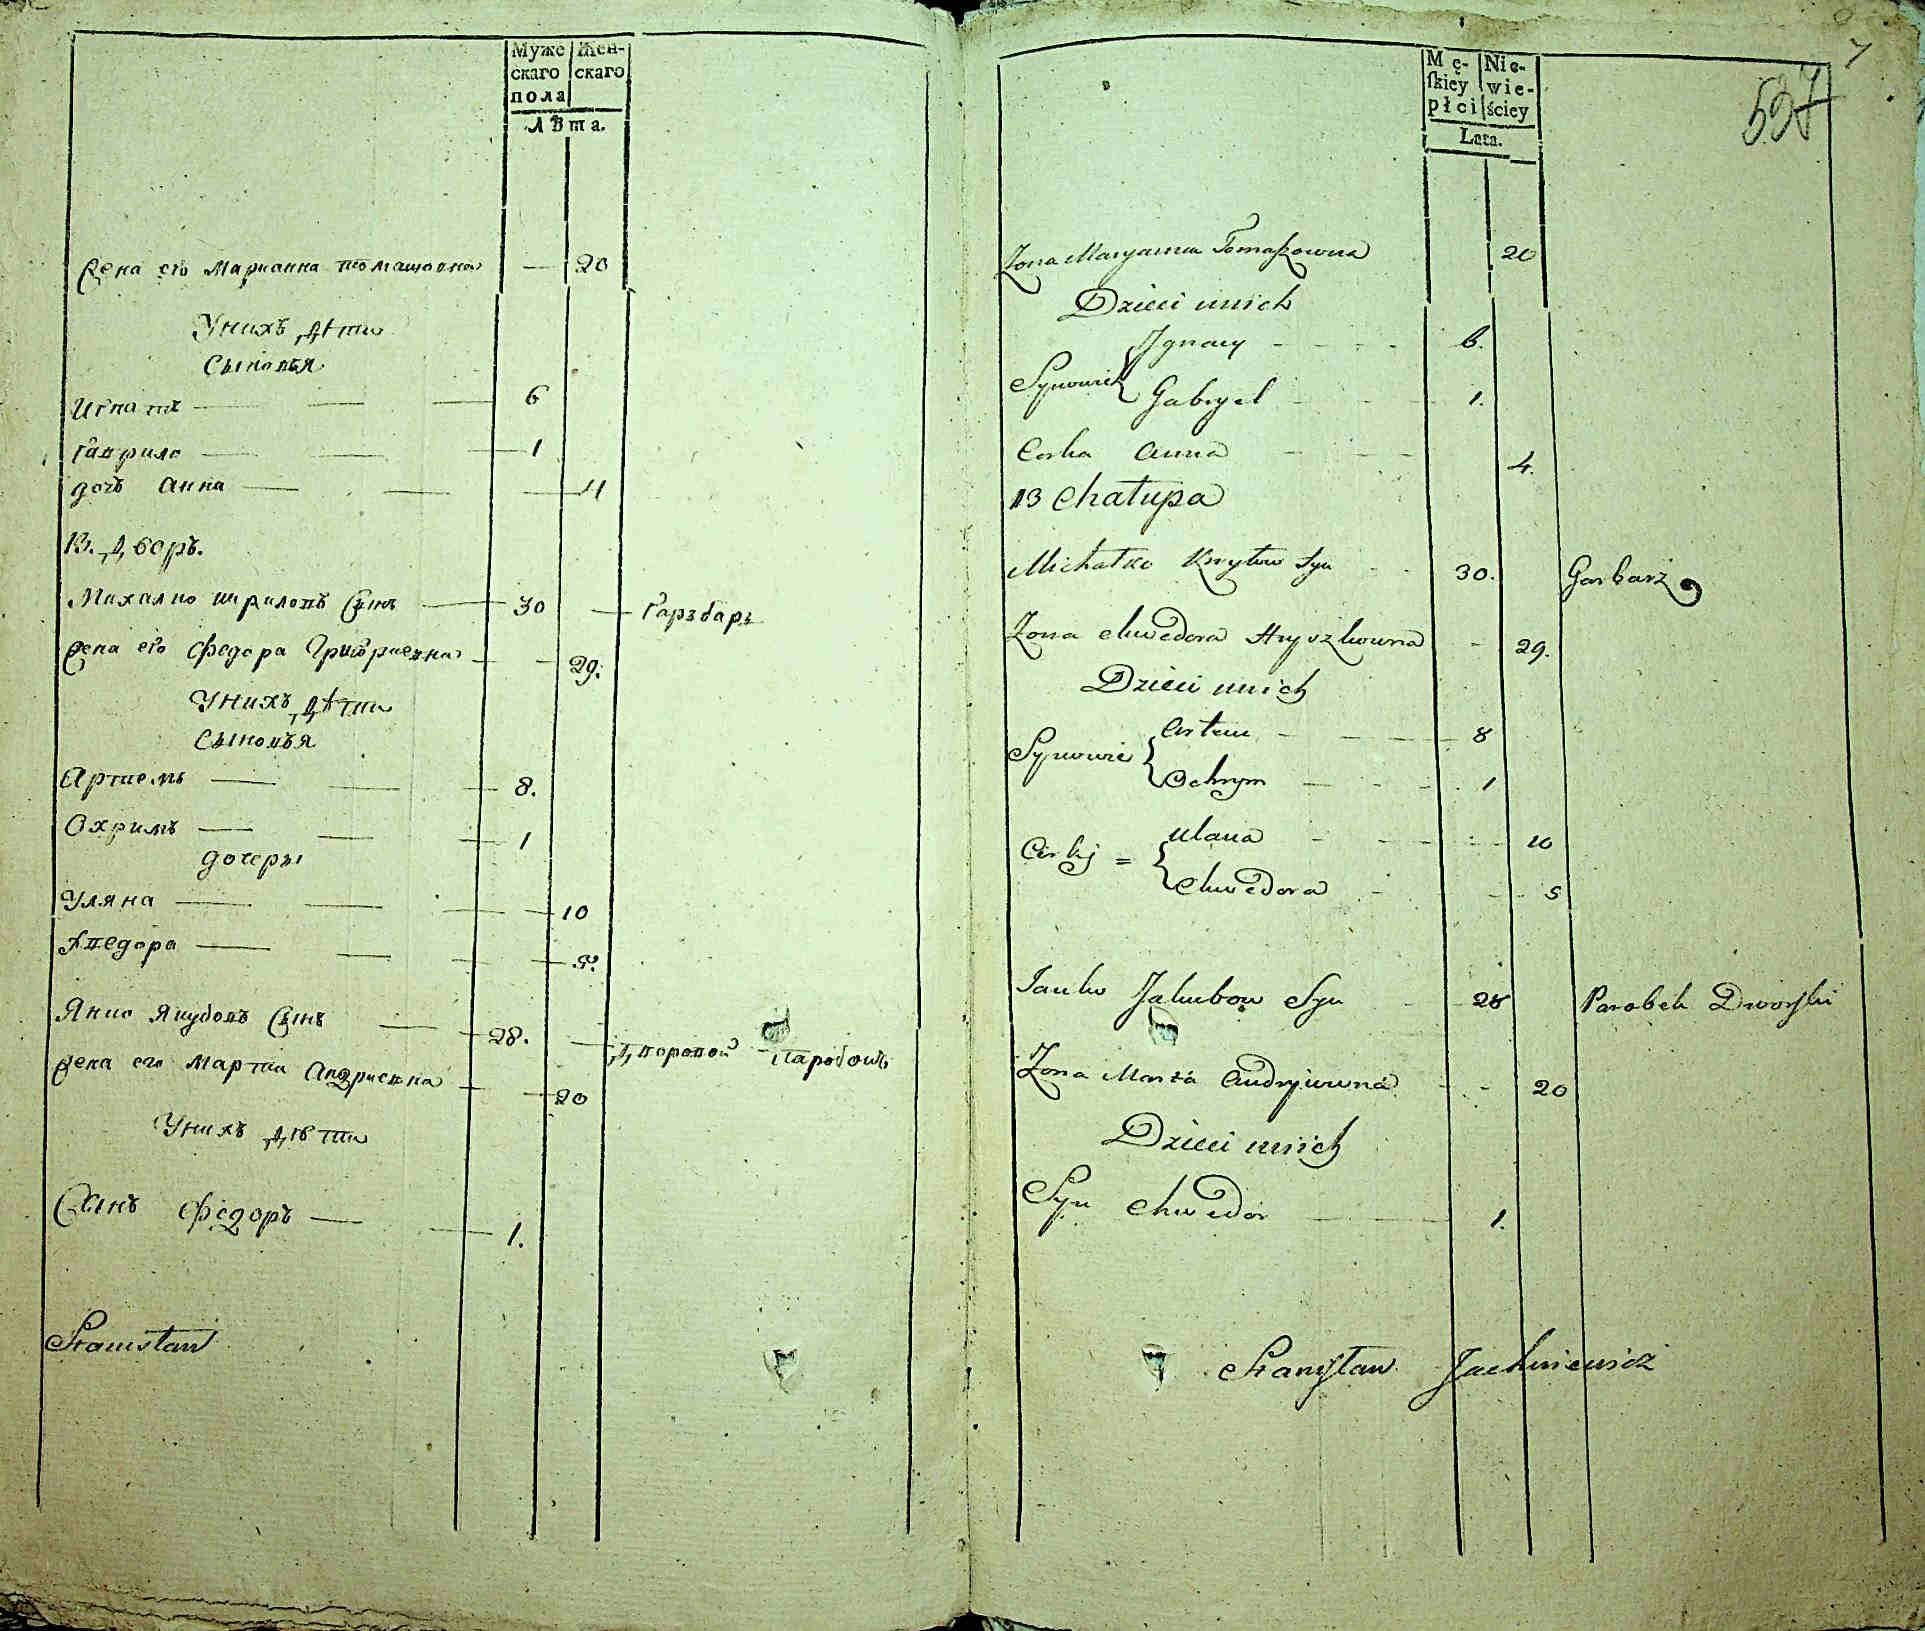 Муже
скаго
пола
Жен-
скаго
Лѣта.
Жена его Марианна томашовна — 20
Унихъ дѣти
Сыновья
Игнатъ — 6
Гаврило — 1
дочь Анна — 4
13. дворъ.
Михалко кириловъ Сынъ — 30 — Гарбарь
Жена его Федора Григориевна — 29.
Унихъ дѣти
Сыновья
Артиемъ — 8.
Охримъ — 1
дочери
Уляна — 10
Хведора — 5.
Янко Якубовъ Сынъ — 28. — дворовой паробокъ
Жена его Марта Андриевна — 20
Унихъ дѣти
Сынъ Федоръ — 1.
Stanisław
7
597
Mę-
skiey
płci
Nie-
wie-
ściey
Lata.
Zona Maryanna Tomaszowna 20
Dzieci unich
Synowie { Ignacy - - - - 6.
Gabryel - - - 1.
Corka Anna - - - 4.
13 Chałupa
Michałko Kryłow Syn - - 30. Garbarz
Zona Chwedora Hryszkowna - 29.
Dzieci unich
Synowie { Artem - - - 8
Ochrym - - - 1
Corki = { Ulana - - - 10
Chwedora - - - 5
Janko Jakubow Syn - 28 Parobek Dworski
Zona Marta Andryiowna - - 20
Dzieci unich
Syn Chwedor - 1.
Stanisław Jachniewicz